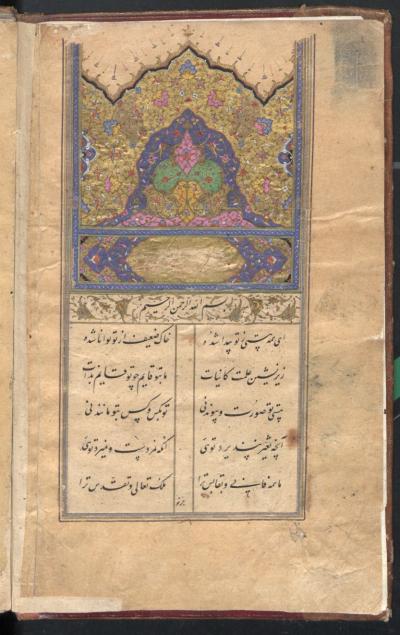 بسم الله الرحمن الرحیم
ای همه هستی ز تو پیدا شده
خاک ضعیف از تو توانا شده
زیر نشین علمت کاینات
ما بتو قایم چو تو قایم بذات
هستی تو صورت و پیوند نی
تو بکس و کس بتو مانند نی
آنچه تغیر نپذیرد توئی
آنکه نمردست و نمیرد توئی
ما همه فانی و بقا بس ترا
ملک تعالی و تقدس ترا